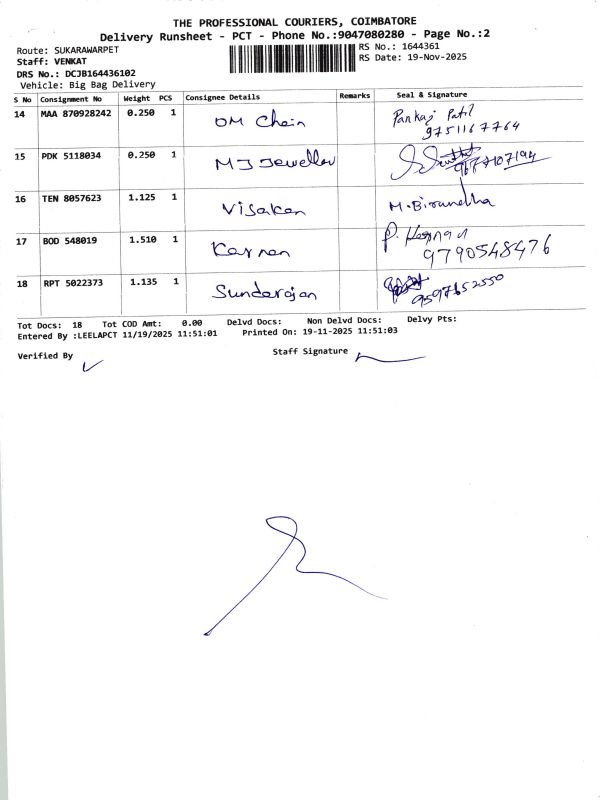 THE PROFESSIONAL COURIERS, COIMBATORE
Delivery Runsheet - PCT - Phone No.:9047080280 - Page No.:2
Route: SUKARAWARPET
RS No.: 1644361
Staff: VENKAT
RS Date: 19-Nov-2025
DRS No.: DCJB164436102
Vehicle: Big Bag Delivery
S No Consignment No Weight PCS Consignee Details Remarks Seal & Signature
14 MAA 870928242 0.250 1 OM Chain Pankaj Patil
9751167764
15 PDK 5118034 0.250 1 MJ Jeweller
16 TEN 8057623 1.125 1 Visakan M. Birundha
17 BOD 548019 1.510 1 Karnan P.
9790548476
18 RPT 5022373 1.135 1 Sundarajan
9597652550
Tot Docs: 18 Tot COD Amt: 0.00 Delvd Docs: Non Delvd Docs: Delvy Pts:
Entered By :LEELAPCT 11/19/2025 11:51:01 Printed On: 19-11-2025 11:51:03
Verified By Staff Signature